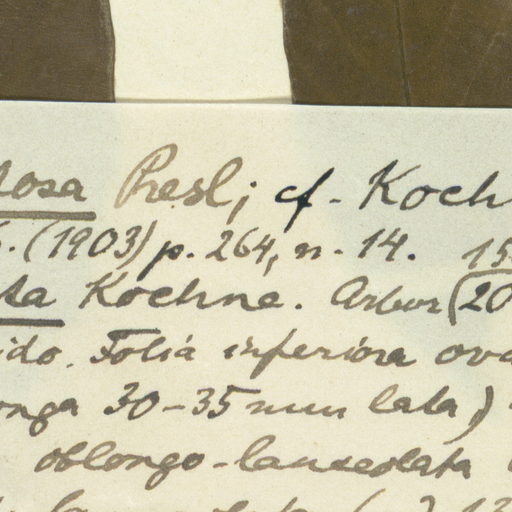 osa Presl; cf. Koch
. (1903) p. 264, n. 14. 15
ta Koehne. Arbor (20
ido. Folia inferiora ova
onga 30-35 mm lata)
oblongo-lanceolata